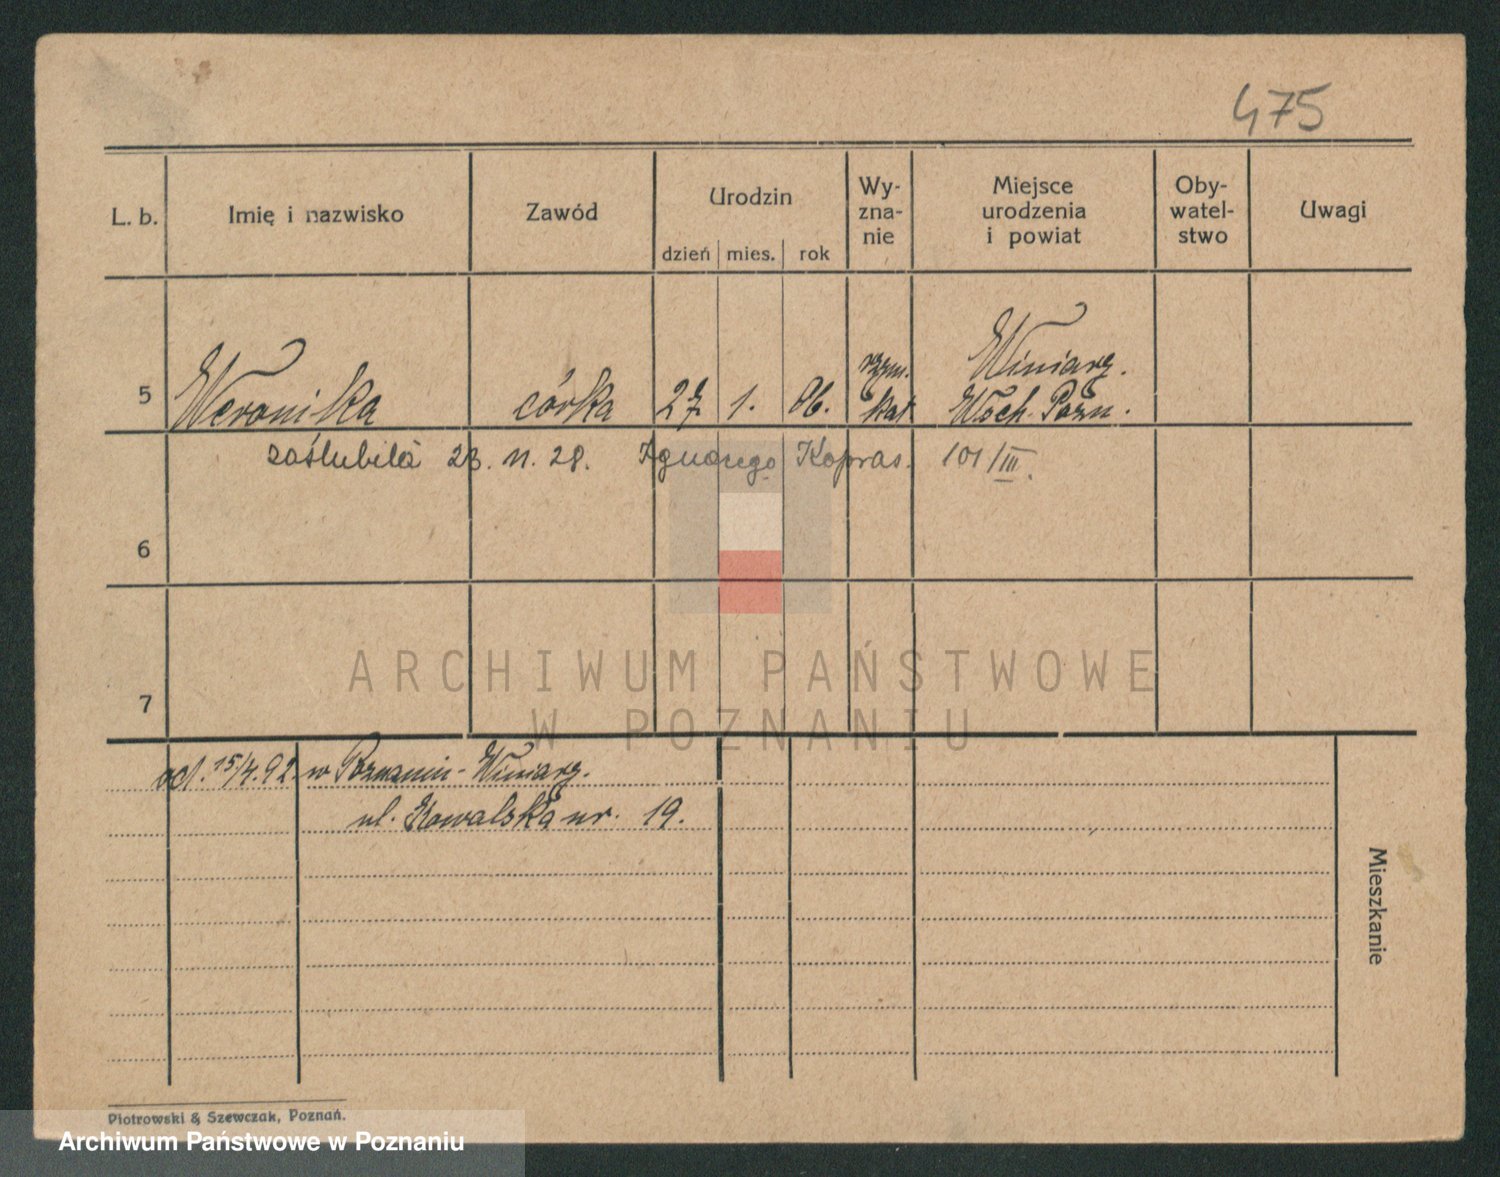 475
L. b.
Imię i nazwisko
Zawód
Urodzin
dzień mies. rok
Wy-
zna-
nie
Miejsce
urodzenia
i powiat
Oby-
watel-
stwo
Uwagi
5 Weronika córka 27. 1. 06. rzym. kat Winiary.
Wsch. Pozn.
zaślubiła 23. 11. 28. Ignacego Kopras. 101/III.
6
7
ARCHIWUM PAŃSTWOWE
W POZNANIU
od. 15/4.92. w Poznaniu-Winiary.
ul. Kowalska nr. 19.
Mieszkanie
Piotrowski & Szewczak, Poznań.
Archiwum Państwowe w Poznaniu